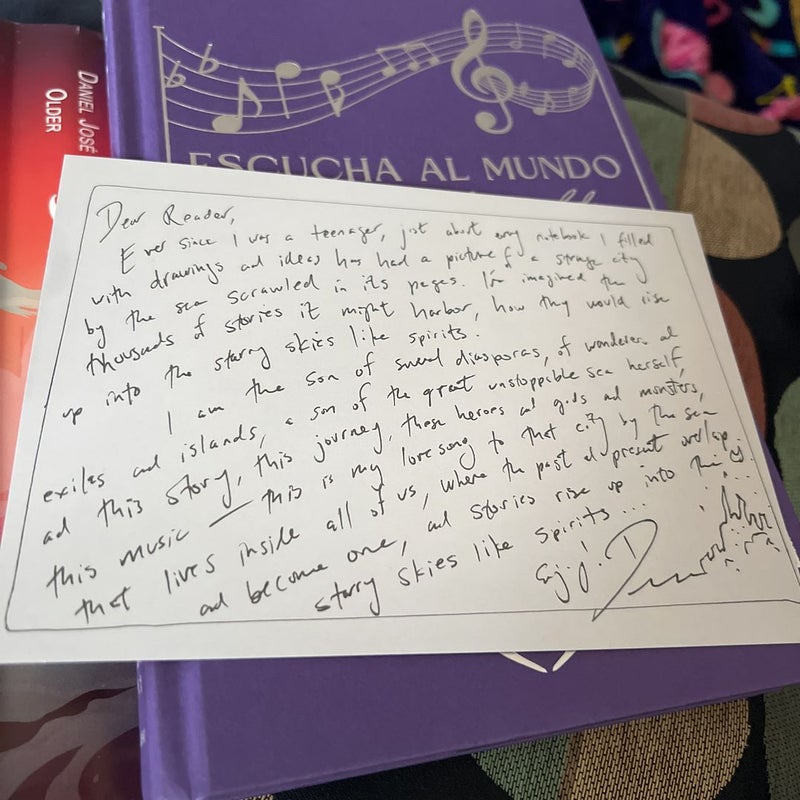 DANIEL JOSÉ
OLDER
ESCUCHA AL MUNDO
Dear Reader,
Ever since I was a teenager, just about every notebook I filled
with drawings and ideas has had a picture of a strange city
by the sea scrawled in its pages. I've imagined the
thousands of stories it might harbor, how they would rise
up into the starry skies like spirits.
I am the son of several diasporas, of wanderers and
exiles and islands, a son of the great unstoppable sea herself,
and this story, this journey, these heroes and gods and monsters,
this music — this is my love song to that city by the sea
that lives inside all of us, where the past and present overlap
and become one, and stories rise up into the
starry skies like spirits...
Enjoy!